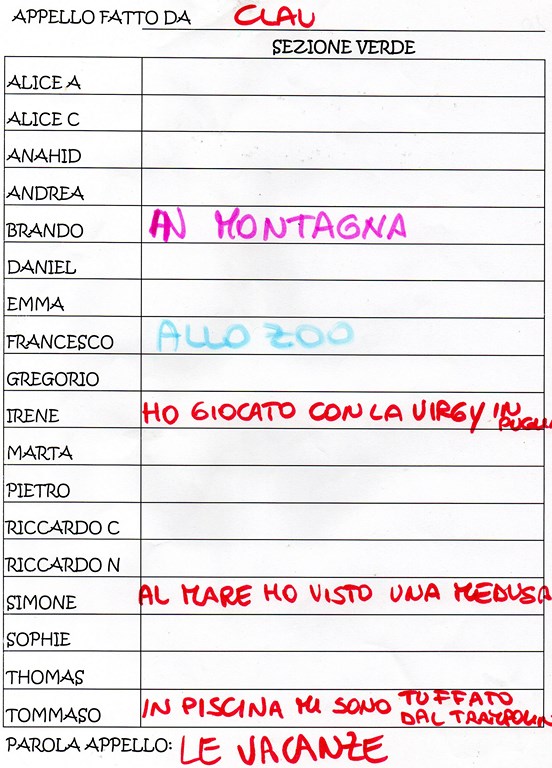 APPELLO FATTO DA CLAU
SEZIONE VERDE
ALICE A
ALICE C
ANAHID
ANDREA
BRANDO IN MONTAGNA
DANIEL
EMMA
FRANCESCO ALLO ZOO
GREGORIO
IRENE HO GIOCATO CON LA VIRGY IN PUGLIA
MARTA
PIETRO
RICCARDO C
RICCARDO N
SIMONE AL MARE HO VISTO UNA MEDUSA
SOPHIE
THOMAS
TOMMASO IN PISCINA MI SONO TUFFATO
DAL TRAMPOLIN
PAROLA APPELLO: LE VACANZE